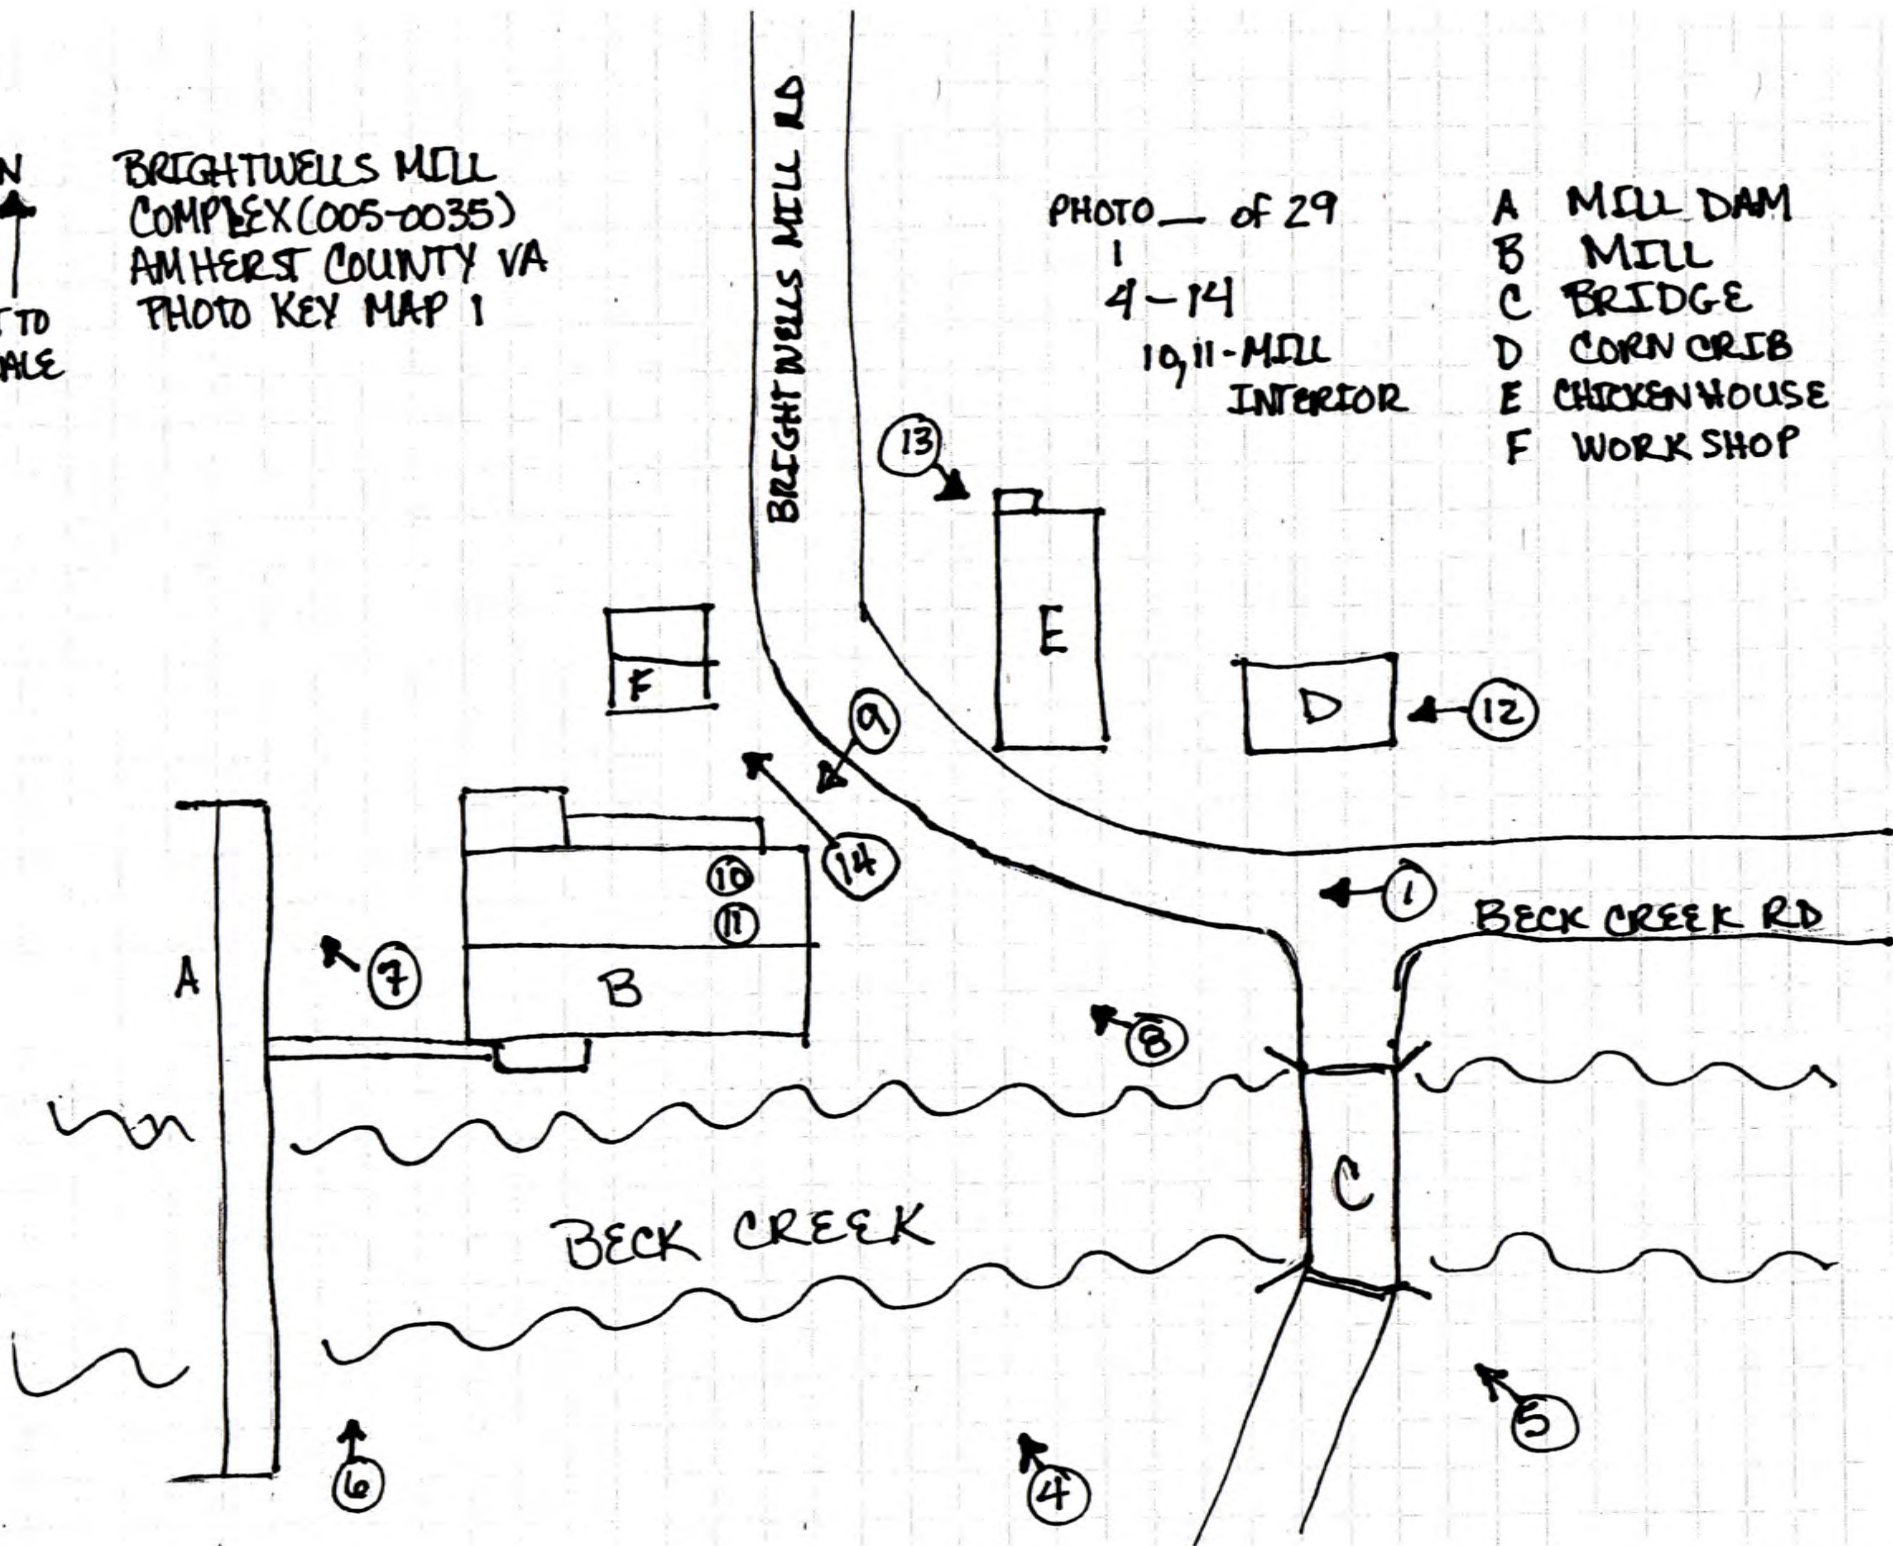 N
BRIGHTWELLS MILL
COMPLEX (005-0035)
AMHERST COUNTY VA
PHOTO KEY MAP 1
BRIGHTWELLS MILL RD
PHOTO __ of 29
1
4-14
10, 11 - MILL
INTERIOR
A MILL DAM
B MILL
C BRIDGE
D CORN CRIB
E CHICKENHOUSE
F WORK SHOP
13
E
F
9
D
12
14
10
11
1
BECK CREEK RD
A
7
B
8
C
BECK CREEK
5
6
4